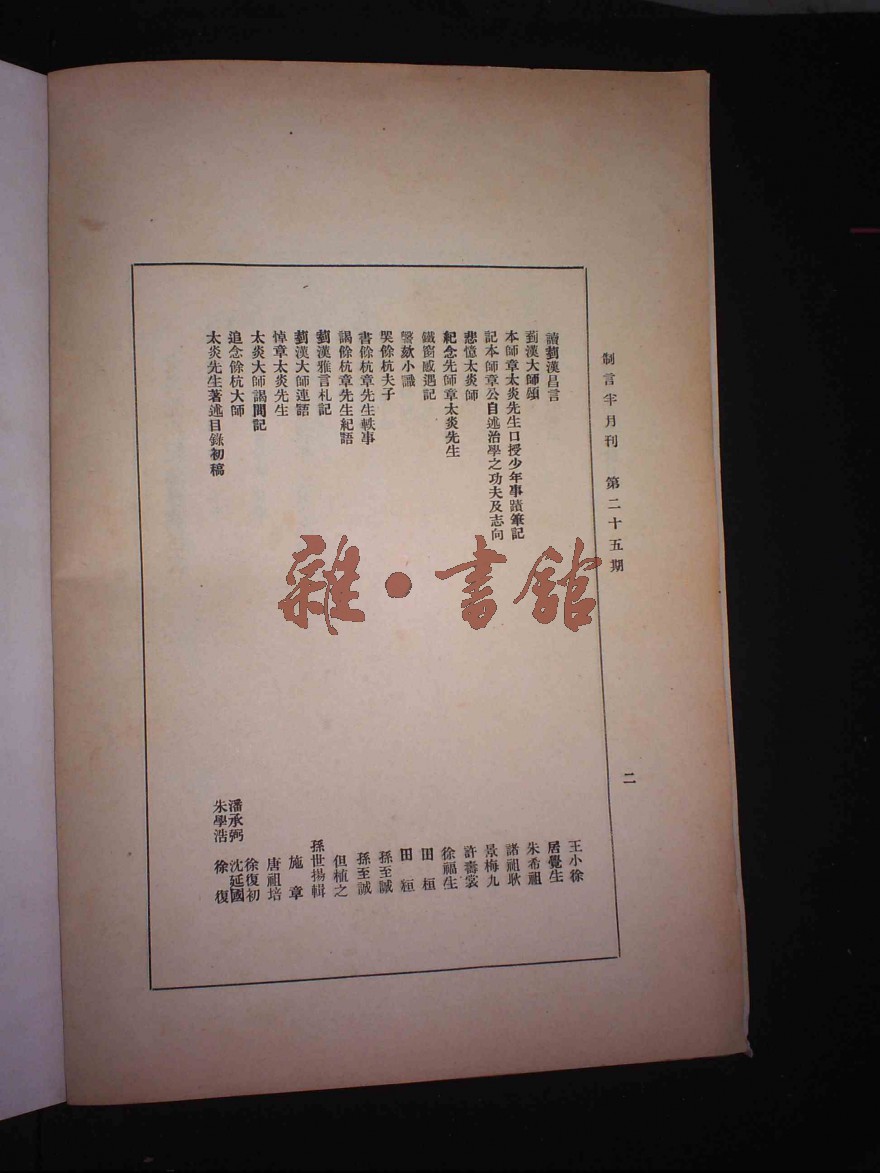 制言半月刊 第二十五期 二
讀菿漢昌言 王小徐
菿漢大師頌 居覺生
本師章太炎先生口授少年事蹟筆記 朱希祖
記本師章公自述治學之功夫及志向 諸祖耿
悲憶太炎師 景梅九
紀念先師章太炎先生 許壽裳
鐵窗感遇記 徐福生
謦欬小識 田桓
哭餘杭夫子 田桓
書餘杭章先生軼事 孫至誠
謁餘杭章先生紀語 孫至誠
菿漢雅言札記 但植之
菿漢大師連語 孫世揚輯
悼章太炎先生 施章
太炎大師謁問記 唐祖培
追念餘杭大師 徐復初
太炎先生著述目錄初稿 潘承弼 沈延國
朱學浩 徐復
雜·書館